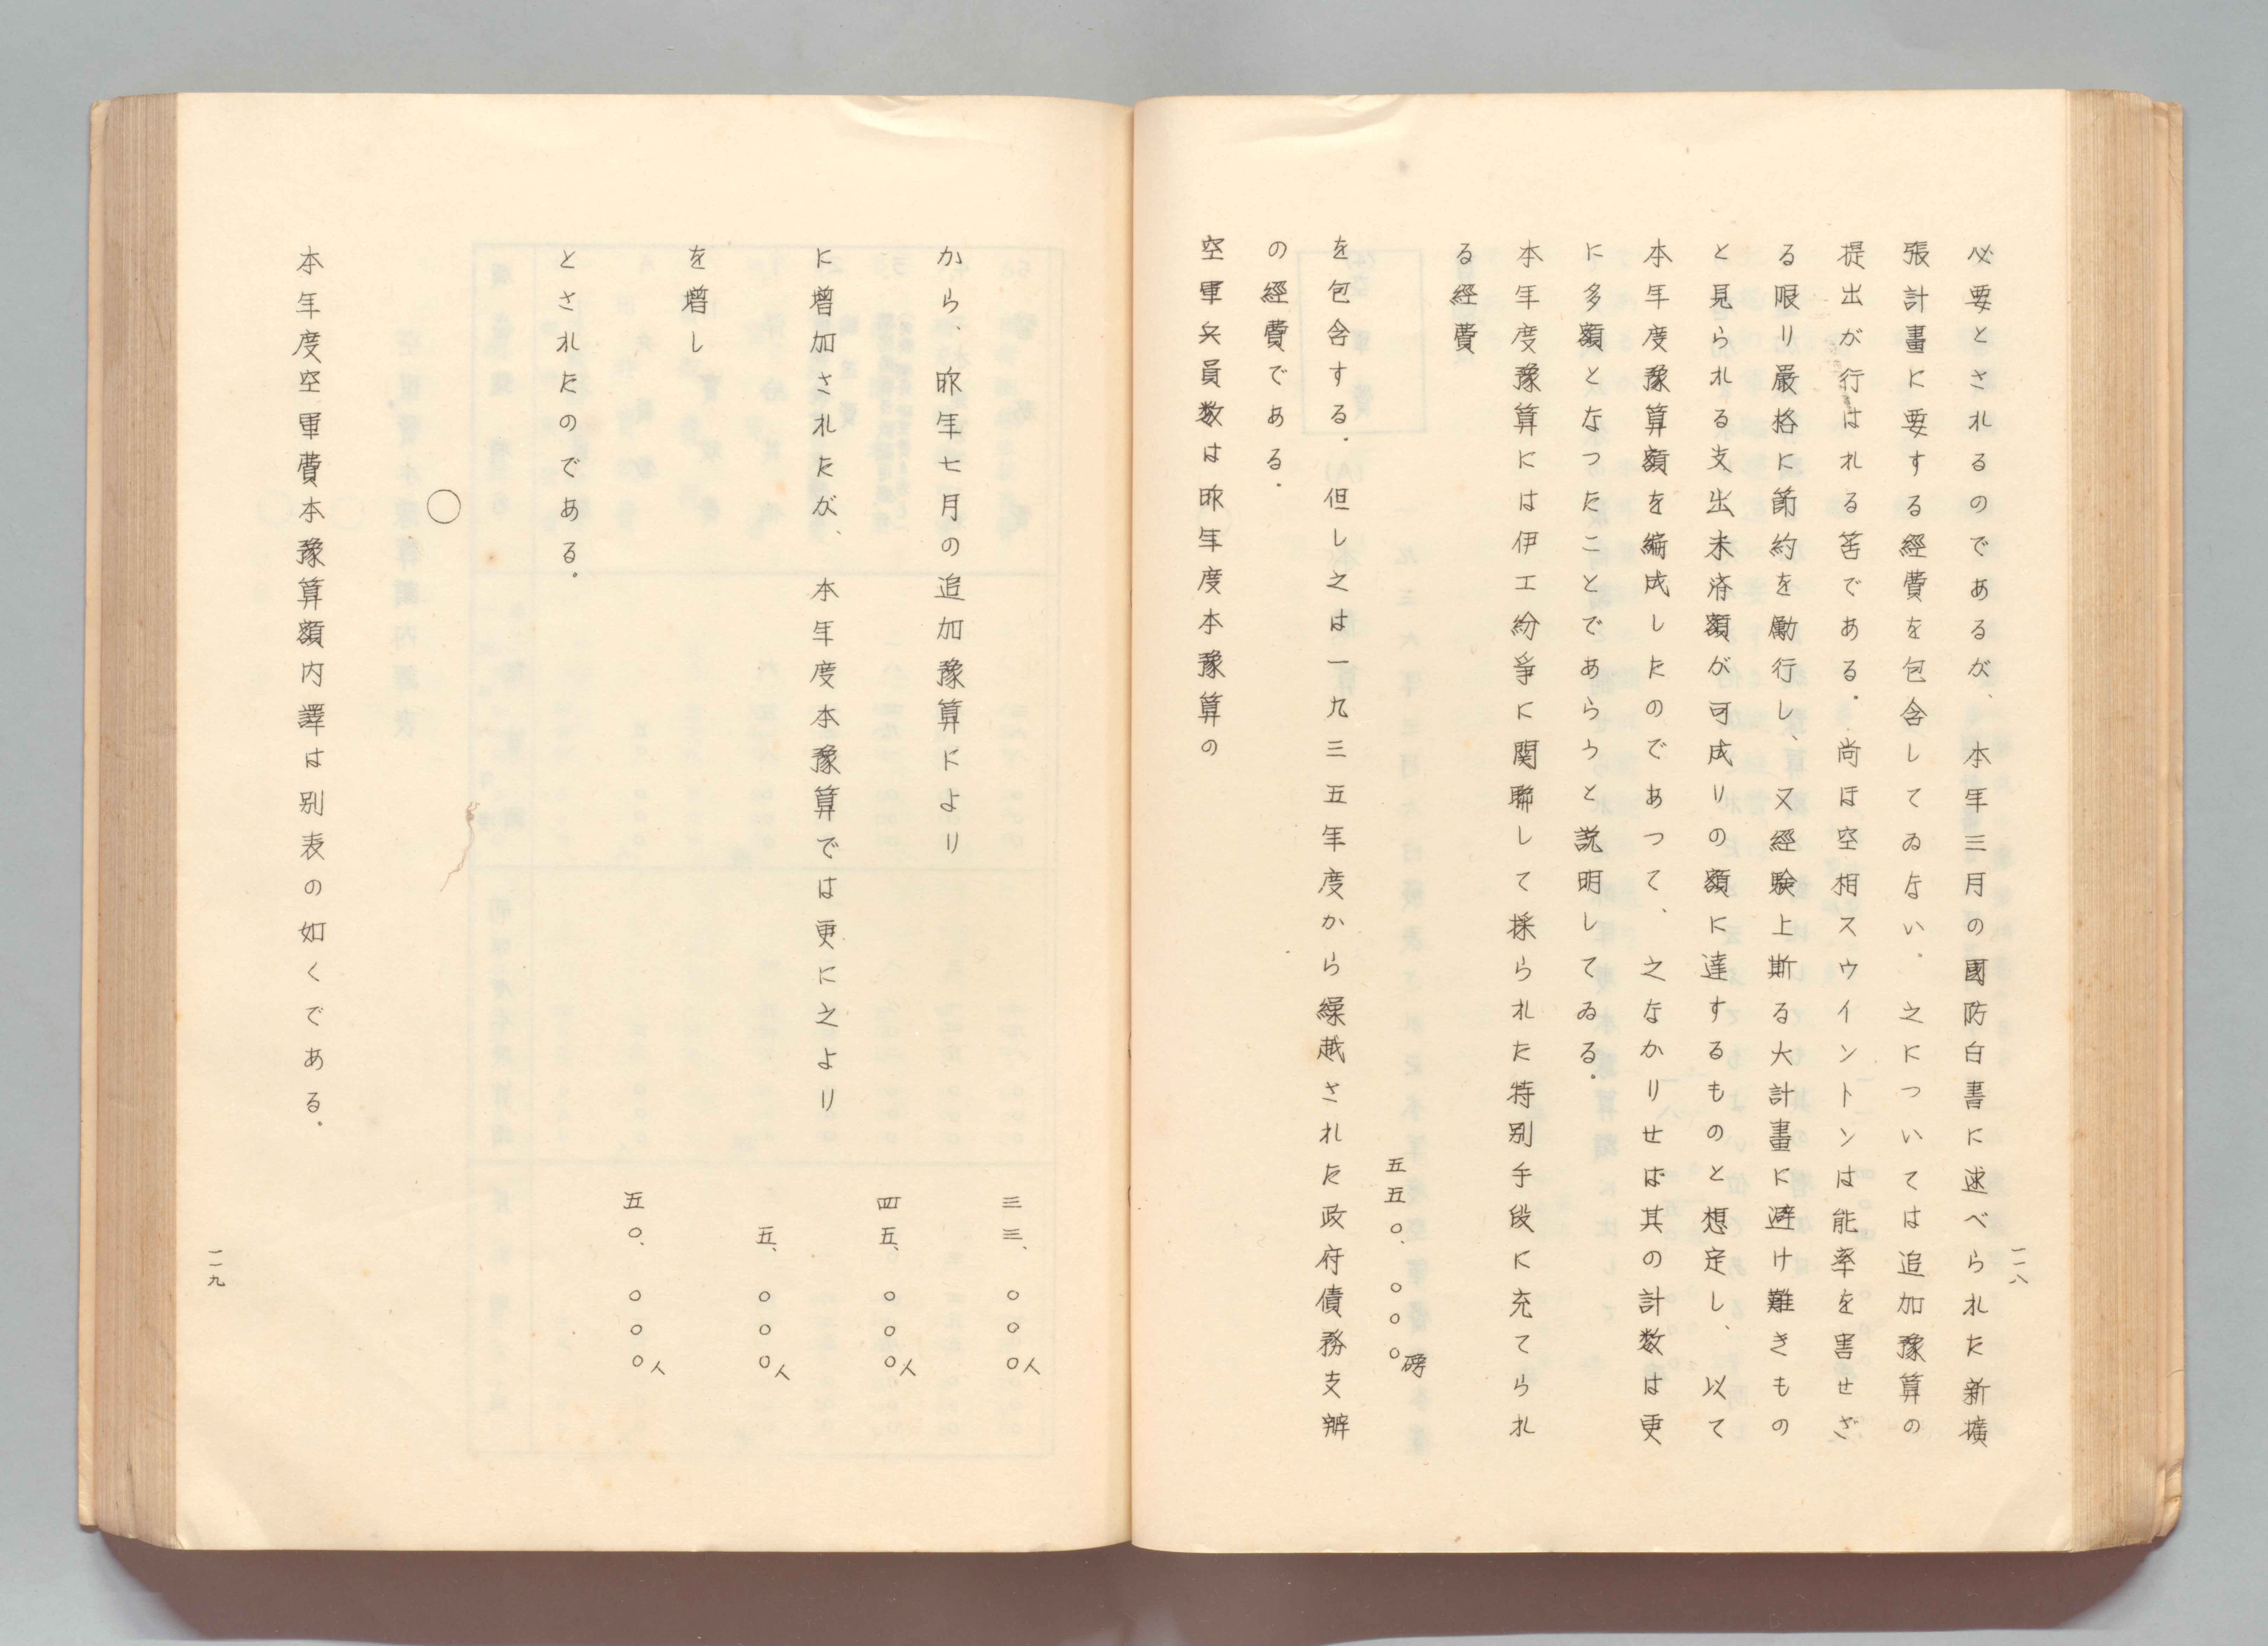 一一八
必要とされるのであるが、本年三月の國防白書に述べられた新擴
張計畫に要する經費を包含してゐない。之については追加豫算の
提出が行はれる筈である。尚ほ空相スウイントンは能率を害せざ
る限り嚴格に節約を働行し、又經験上斯る大計畫に避け難きもの
と見られる支出未済額が可成りの額に達するものと想定し、以て
本年度豫算額を編成したのであつて、之なかりせば其の計数は更
に多額となつたことであらうと説明してゐる。
本年度豫算には伊エ紛爭に関聯して採られた特别手段に充てられ
る經費
五五〇、〇〇〇磅
を包含する。但し之は一九三五年度から繰越された政府債務支辨
の經費である。
空軍兵員数は昨年度本豫算の
三三、〇〇〇人
から、昨年七月の追加豫算により
四五、〇〇〇人
に増加されたが、本年度本豫算では更に之より
五、〇〇〇人
を増し
五〇、〇〇〇人
とされたのである。
〇
本年度空軍費本豫算額内譯は别表の如くである。
一一九